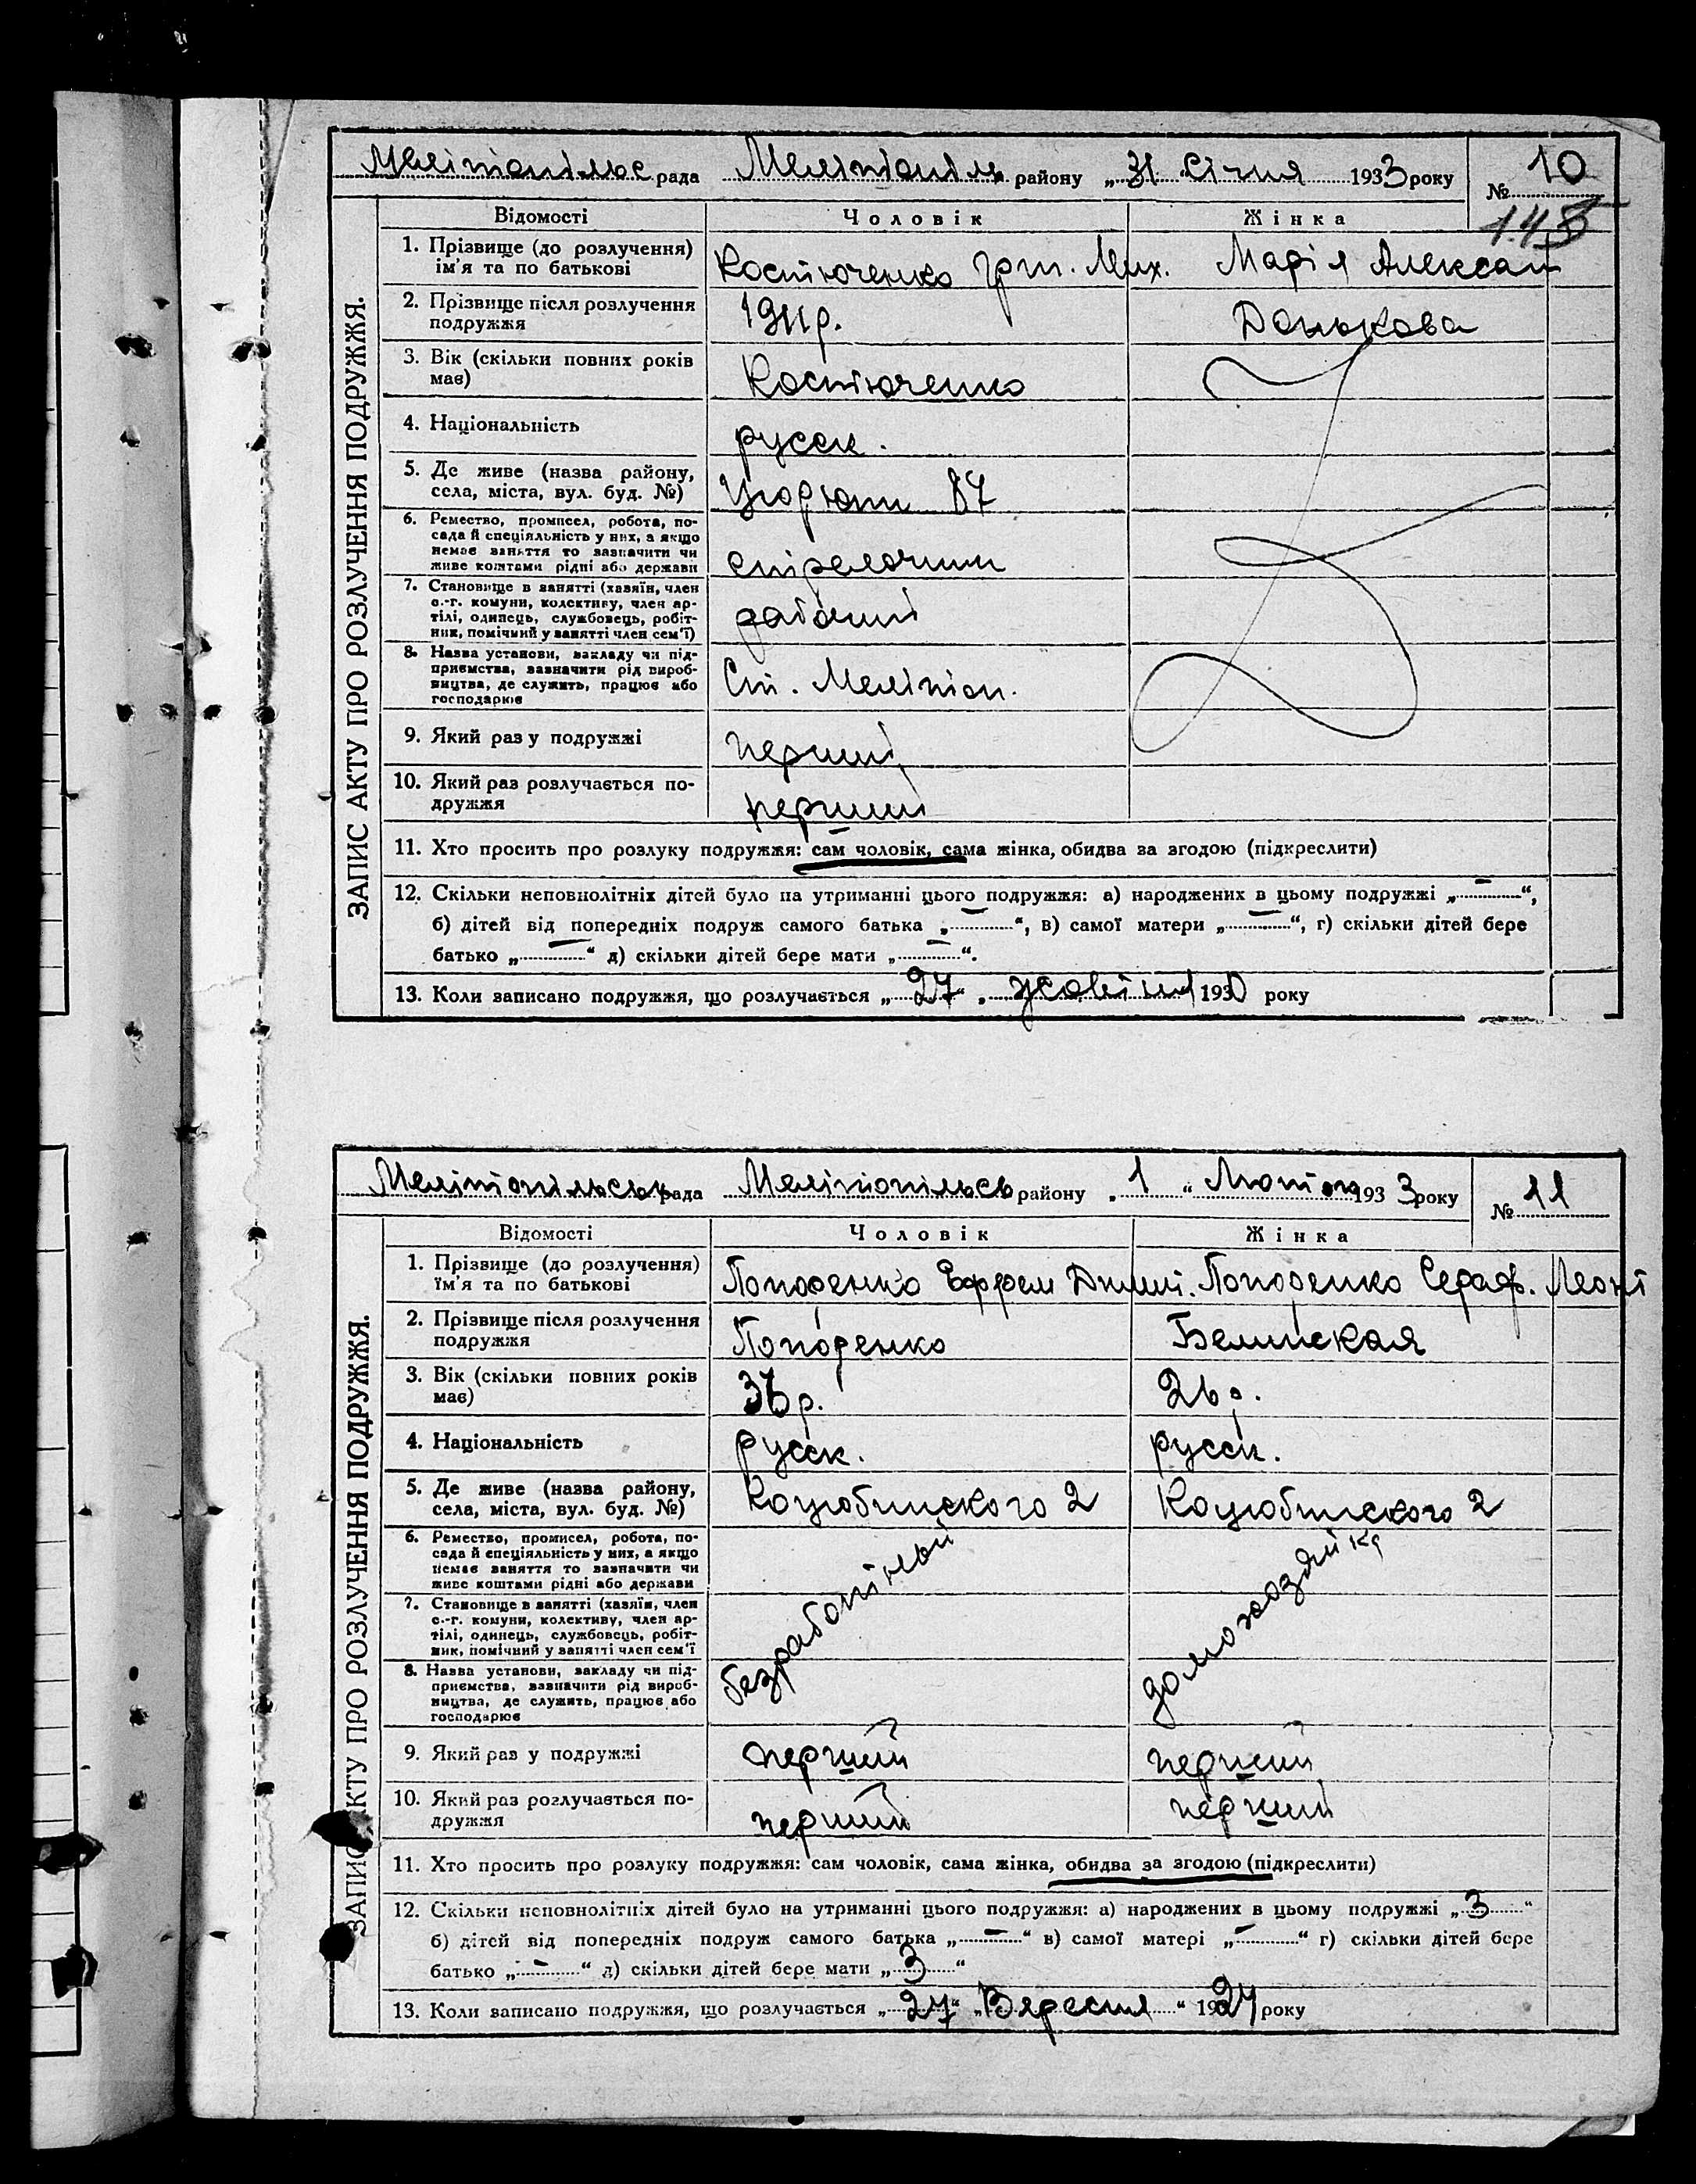 Мелітопільс рада Мелітопіль району „31 Січня 1933 року № 10
145
Відомості Чоловік Жінка
ЗАПИС АКТУ ПРО РОЗЛУЧЕННЯ ПОДРУЖЖЯ.
1. Прізвище (до розлучення)
ім'я та по батькові
Костюченко Мих. Марія Алексан
2. Прізвище після розлучення
подружжя
1911р. Донькова
3. Вік (скільки повних років
має)
Костюченко
4. Національність
русск.
5. Де живе (назва району,
села, міста, вул. буд. №)
87
6. Ремество, промисел, робота, по-
сада й спеціяльність у них, а якщо
немає заняття то зазначити чи
живе коштами рідні або держави
стрелочник
7. Становище в занятті (хазяїн, член
с.-г. комуни, колективу, член ар-
тілі, одинець, службовець, робіт-
ник, помічний у занятті член сем'ї)
рабочий
8. Назва установи, закладу чи під-
приємства, зазначити рід вироб-
ництва, де служить, працює або
господарює
Ст. Мелітоп.
9. Який раз у подружжі
перший
10. Який раз розлучається по-
дружжя
перший
11. Хто просить про розлуку подружжя: сам чоловік, сама жінка, обидва за згодою (підкреслити)
12. Скільки неповнолітніх дітей було на утриманні цього подружжя: а) народжених в цьому подружжі „—“,
б) дітей від попередніх подруж самого батька „—“, в) самої матери „—“, г) скільки дітей бере
батько „—“ д) скільки дітей бере мати „—“.
13. Коли записано подружжя, що розлучається „27“ жовтня 1930 року
Мелітопільськ рада Мелітопільсь району „1“ Лютого 1933 року № 11
Відомості Чоловік Жінка
ЗАПИС АКТУ ПРО РОЗЛУЧЕННЯ ПОДРУЖЖЯ.
1. Прізвище (до розлучення)
їм'я та по батькові
Поподенко Ефрем Дмит. Поподенко Сераф. Леонт
2. Прізвище після розлучення
подружжя
Поподенко Белинская
3. Вік (скільки повних років
має)
р. 26 р.
4. Національність
русск. русск.
5. Де живе (назва району,
села, міста, вул. буд. №)
Коцюбинского 2 Коцюбинского 2
6. Ремество, промисел, робота, по-
сада й спеціяльність у них, а якщо
немає заняття то зазначити чи
живе коштами рідні або держави
7. Становище в занятті (хазяїн, член
с.-г. комуни, колективу, член ар-
тілі, одинець, службовець, робіт-
ник, помічний у занятті член сем'ї
8. Назва установи, закладу чи під-
приємства, зазначити рід вироб-
ництва, де служить, працює або
господарює
безработный домохозяйка
9. Який раз у подружжі
перший перший
10. Який раз розлучається по-
дружжя
перший перший
11. Хто просить про розлуку подружжя: сам чоловік, сама жінка, обидва за згодою (підкреслити)
12. Скільки неповнолітніх дітей було на утриманні цього подружжя: а) народжених в цьому подружжі „3“
б) дітей від попередніх подруж самого батька „—“ в) самої матері „—“ г) скільки дітей бере
батько „—“ д) скільки дітей бере мати „3“
13. Коли записано подружжя, що розлучається „27“ „Вересня“ 1924 року